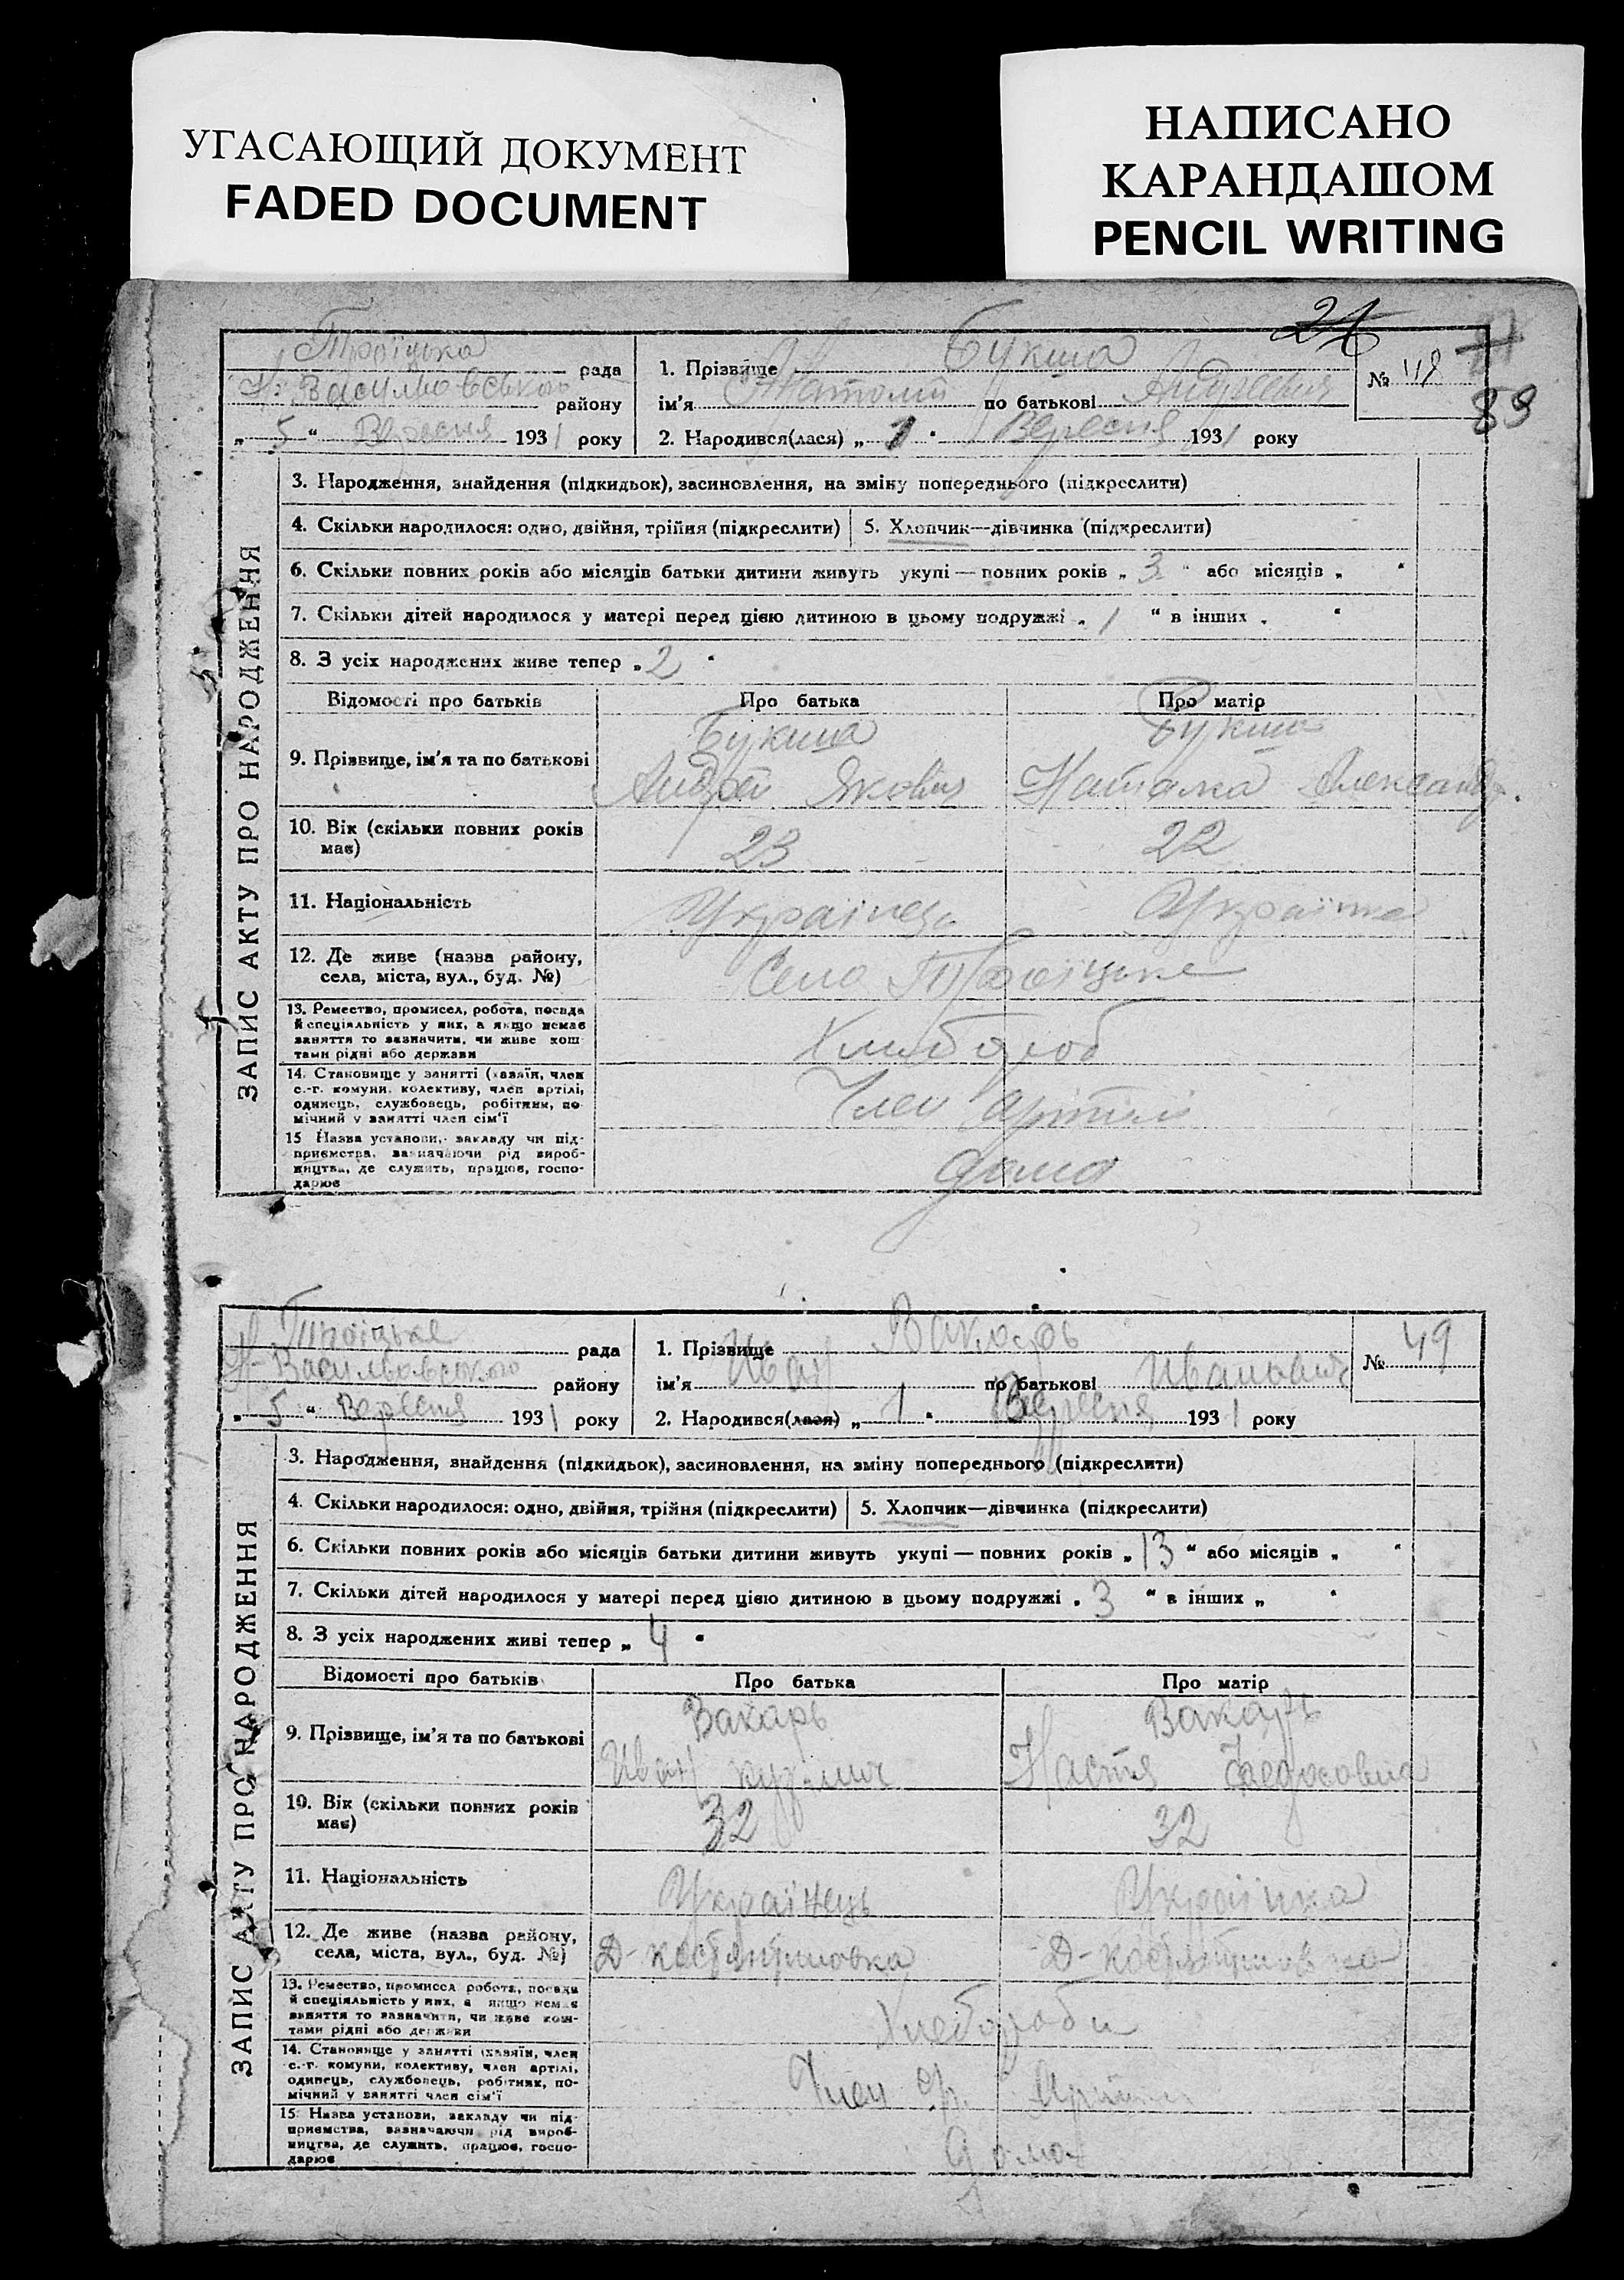 УГАСАЮЩИЙ ДОКУМЕНТ
FADED DOCUMENT
НАПИСАНО
КАРАНДАШОМ
PENCIL WRITING
24
89
ЗАПИС АКТУ ПРО НАРОДЖЕННЯ
Троїцька рада
Н. Васильовського району
„ 5 “ Вересня 1931 року
1. Прізвище Букша
ім'я Анатолій по батькові Андреевич
№ 48
2. Народився(лася) „ 1 “ Вересня 1931 року
3. Народження, знайдення (підкидьок), засиновлення, на зміну попереднього (підкреслити)
4. Скільки народилося: одно, двійня, трійня (підкреслити) 5. Хлопчик—дівчинка (підкреслити)
6. Скільки повних років або місяців батьки дитини живуть укупі — повних років „ 3 “ або місяців „ “
7. Скільки дітей народилося у матері перед цією дитиною в цьому подружжі „ 1 “ в інших „ “
8. З усіх народжених живе тепер „ 2 “
Відомості про батьків Про батька Про матір
9. Прізвище, ім'я та по батькові Букша Букша
Андрей Якович Наталка Александр.
10. Вік (скільки повних років має) 23 22
11. Національність Українець Українка
12. Де живе (назва району, села, міста, вул., буд. №) Село Троїцьке
13. Ремество, промисел, робота, посада й спеціяльність у них, а якщо немає заняття то зазначити, чи живе кош тами рідні або держави Хлибороб
14. Становище у занятті (хазяїн, член с.-г. комуни, колективу, член артілі, одинець, службовець, робітник, помічний у занятті член сім'ї Член Артілі
15 Назва установи, закладу чи підприємства, зазначаючи рід виробництва, де служить, працює, господарює дома
ЗАПИС АКТУ ПРО НАРОДЖЕННЯ
Троїцьке рада
Н-Васильовського району
„ 5 “ Вересня 1931 року
1. Прізвище Вакарь
ім'я Иван по батькові Иванович
№ 49
2. Народився(лася) „ 1 “ Вересня 1931 року
3. Народження, знайдення (підкидьок), засиновлення, на зміну попереднього (підкреслити)
4. Скільки народилося: одно, двійня, трійня (підкреслити) 5. Хлопчик—дівчинка (підкреслити)
6. Скільки повних років або місяців батьки дитини живуть укупі — повних років „ 13 “ або місяців „ “
7. Скільки дітей народилося у матері перед цією дитиною в цьому подружжі „ 3 “ в інших „ “
8. З усіх народжених живі тепер „ 4 “
Відомості про батьків Про батька Про матір
9. Прізвище, ім'я та по батькові Вакарь Вакарь
Иван Настя Федосовна
10. Вік (скільки повних років має) 32 32
11. Національність Українець Українка
12. Де живе (назва району, села, міста, вул., буд. №)
13. Ремество, промисел робота, посада й спеціяльність у них, а якщо немає заняття то зазначити, чи живе коштами рідні або держави Хлебороби
14. Становище у занятті (хазяїн, член с.-г. комуни, колективу, член артілі, одинець, службовець, робітник, помічний у занятті член сім'ї Член Артілі
15 Назва установи, закладу чи підприємства, зазначаючи рід виробництва, де служить, працює, господарює дома